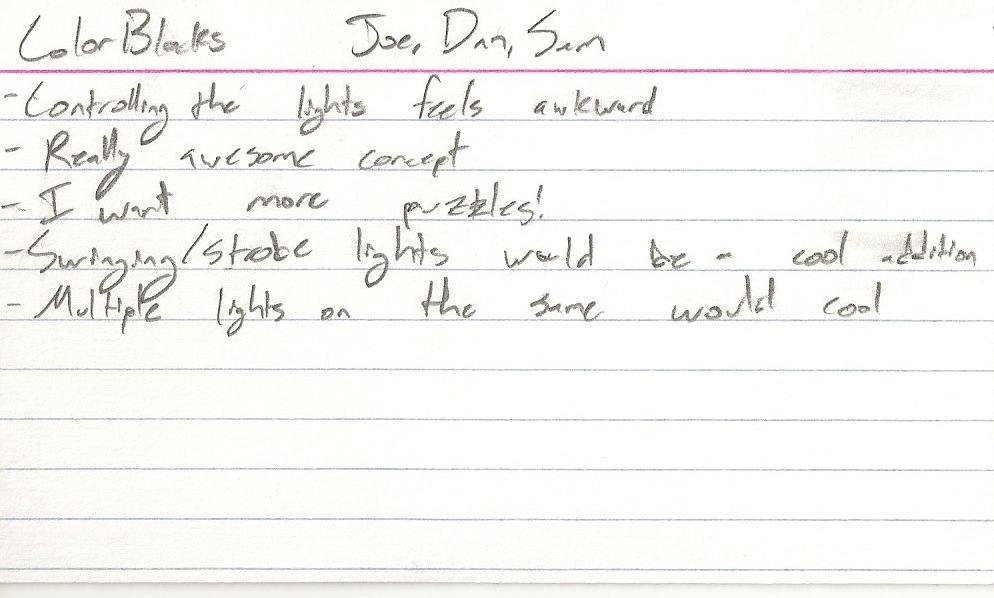 Color Blocks Joe, Dan, Sam
- Controlling the lights feels awkward
- Really awesome concept
- I want more puzzles!
- Swinging/strobe lights would be a cool addition
- Multiple lights on the same would cool